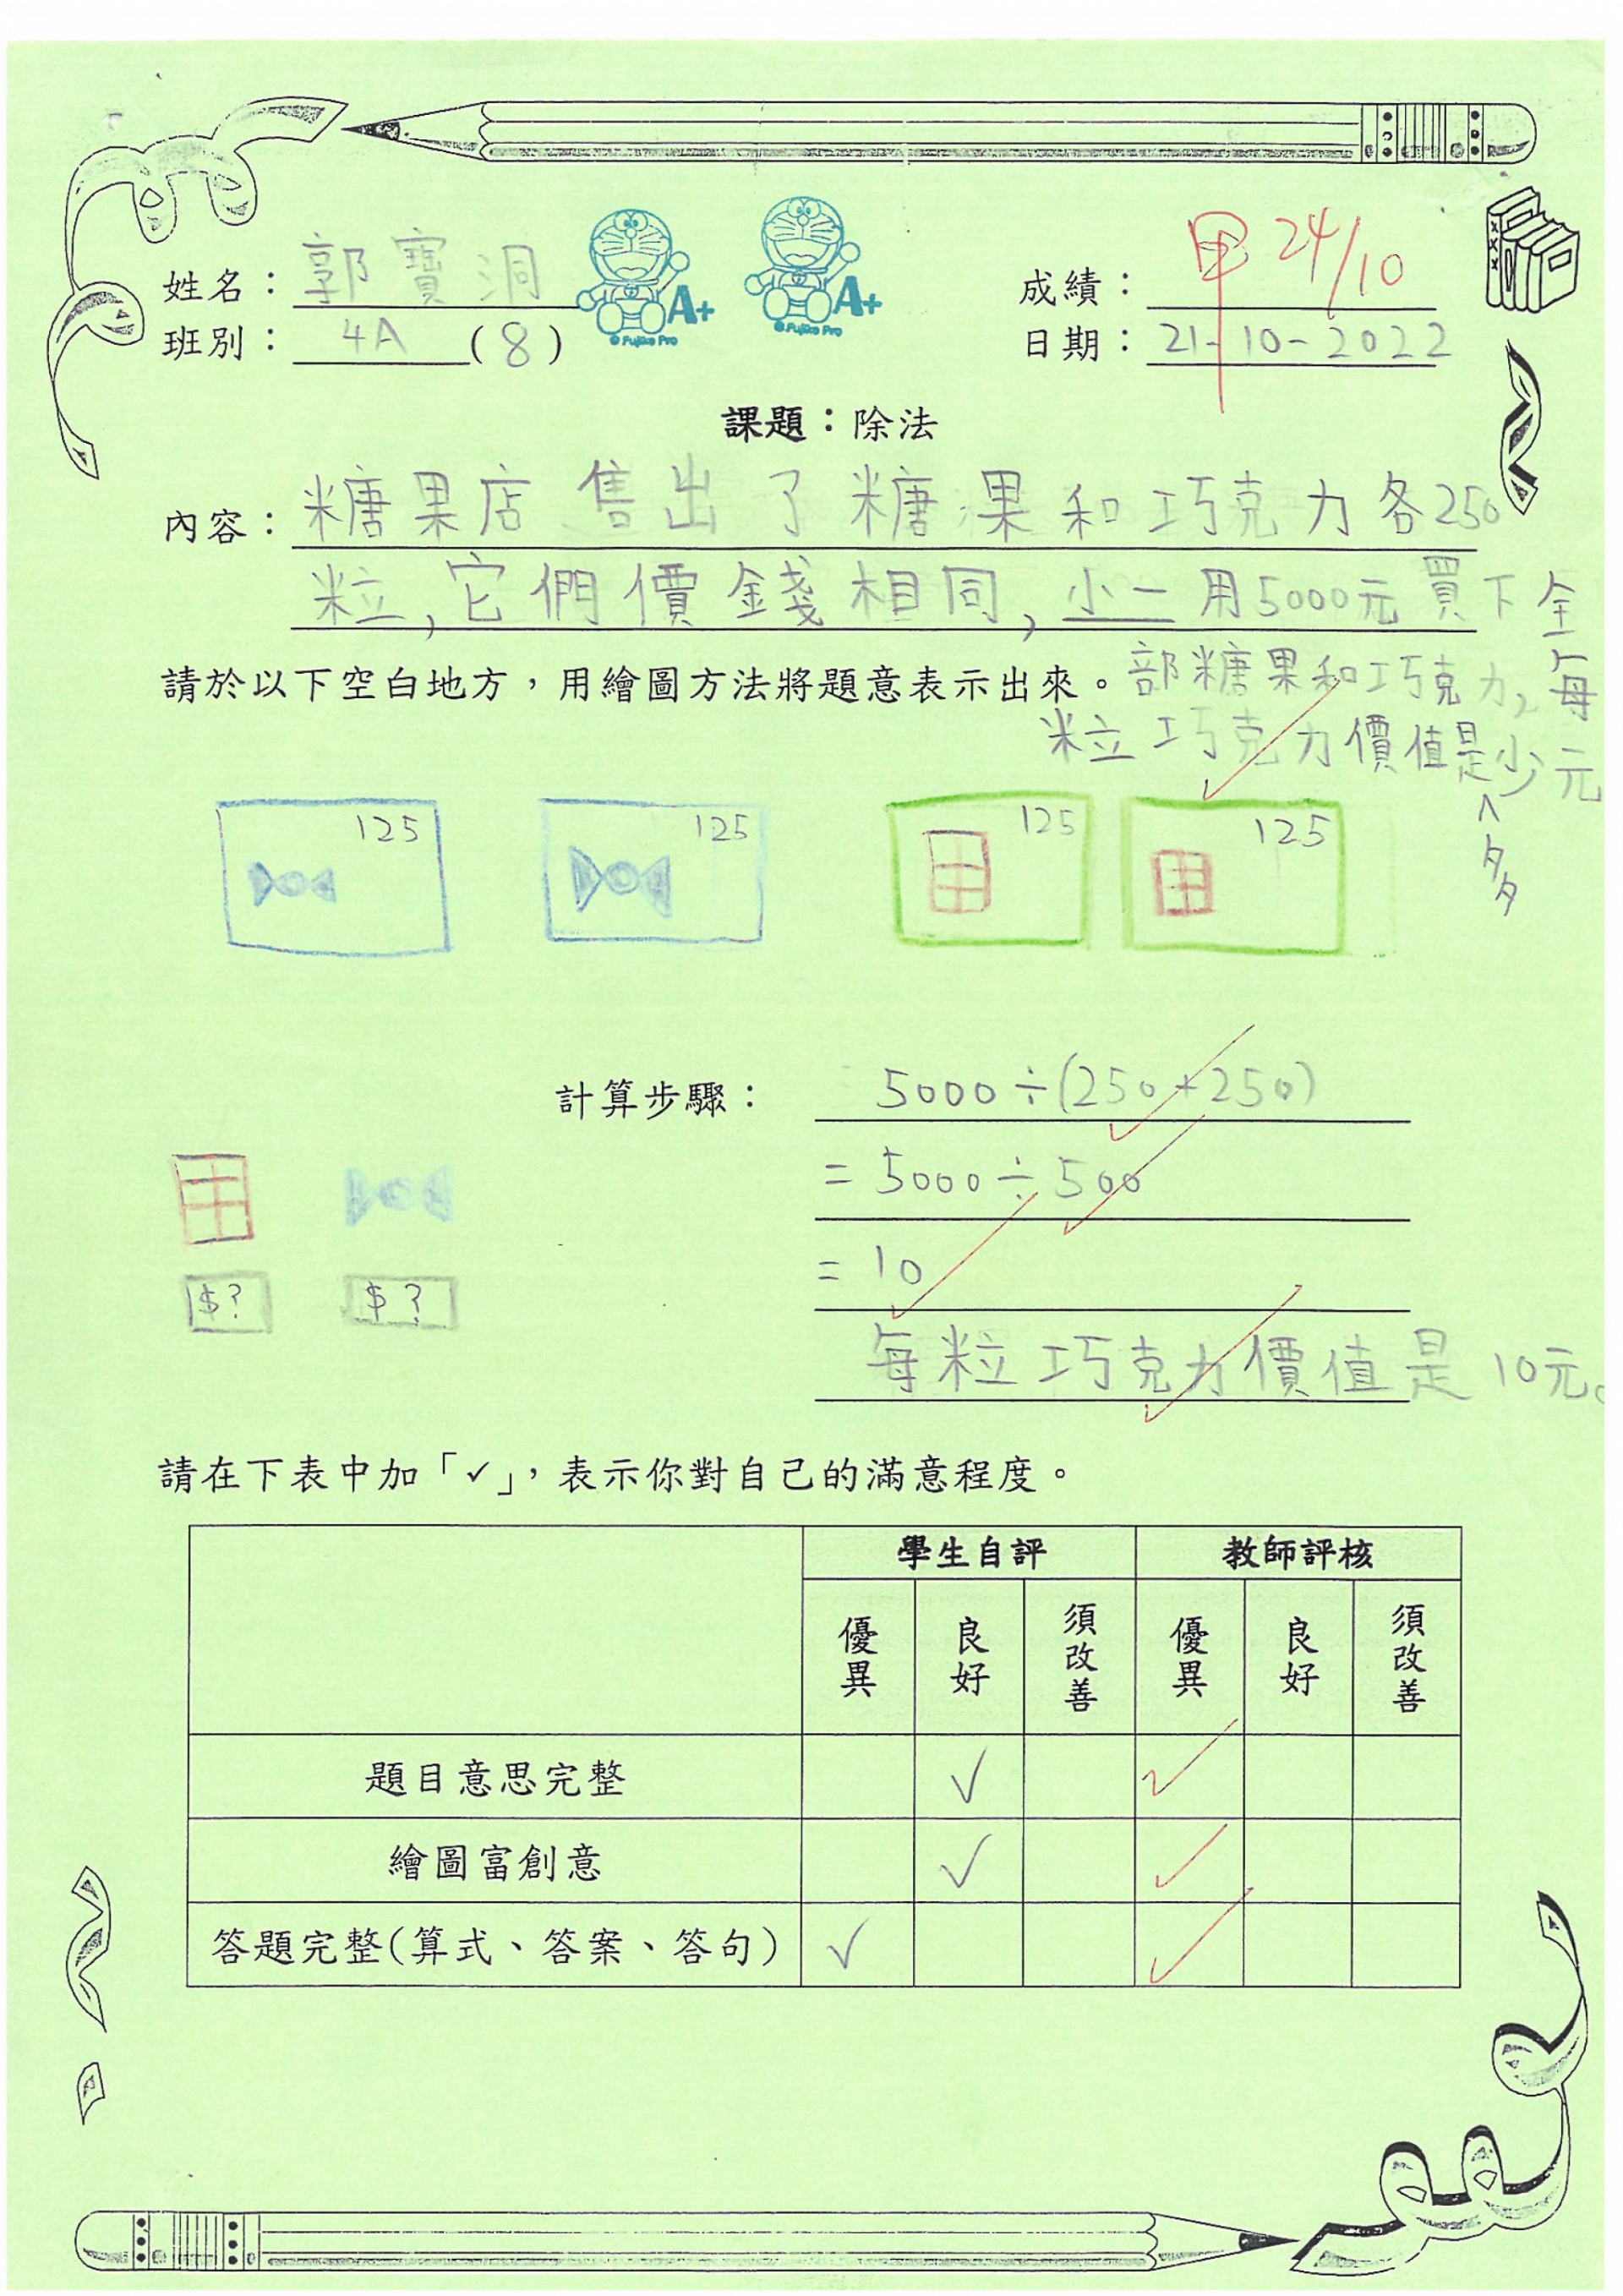 姓名：郭寶洞
A+
© Fujiko Pro
A+
© Fujiko Pro
成績：甲 24/10
班別：4A (8)
日期：21-10-2022
課題：除法
內容：糖果店售出了糖果和巧克力各250
粒,它們價錢相同,小一用5000元買下全
請於以下空白地方，用繪圖方法將題意表示出來。
部糖果和巧克力,每
粒巧克力價值是少元
^
多
125
125
125
125
計算步驟：
5000÷(250+250)
=5000÷500
=10
$?
$?
每粒巧克力價值是10元。
請在下表中加「✓」，表示你對自己的滿意程度。
學生自評 教師評核
優異 良好 須改善 優異 良好 須改善
題目意思完整 ✓ ✓
繪圖富創意 ✓ ✓
答題完整(算式、答案、答句) ✓ ✓